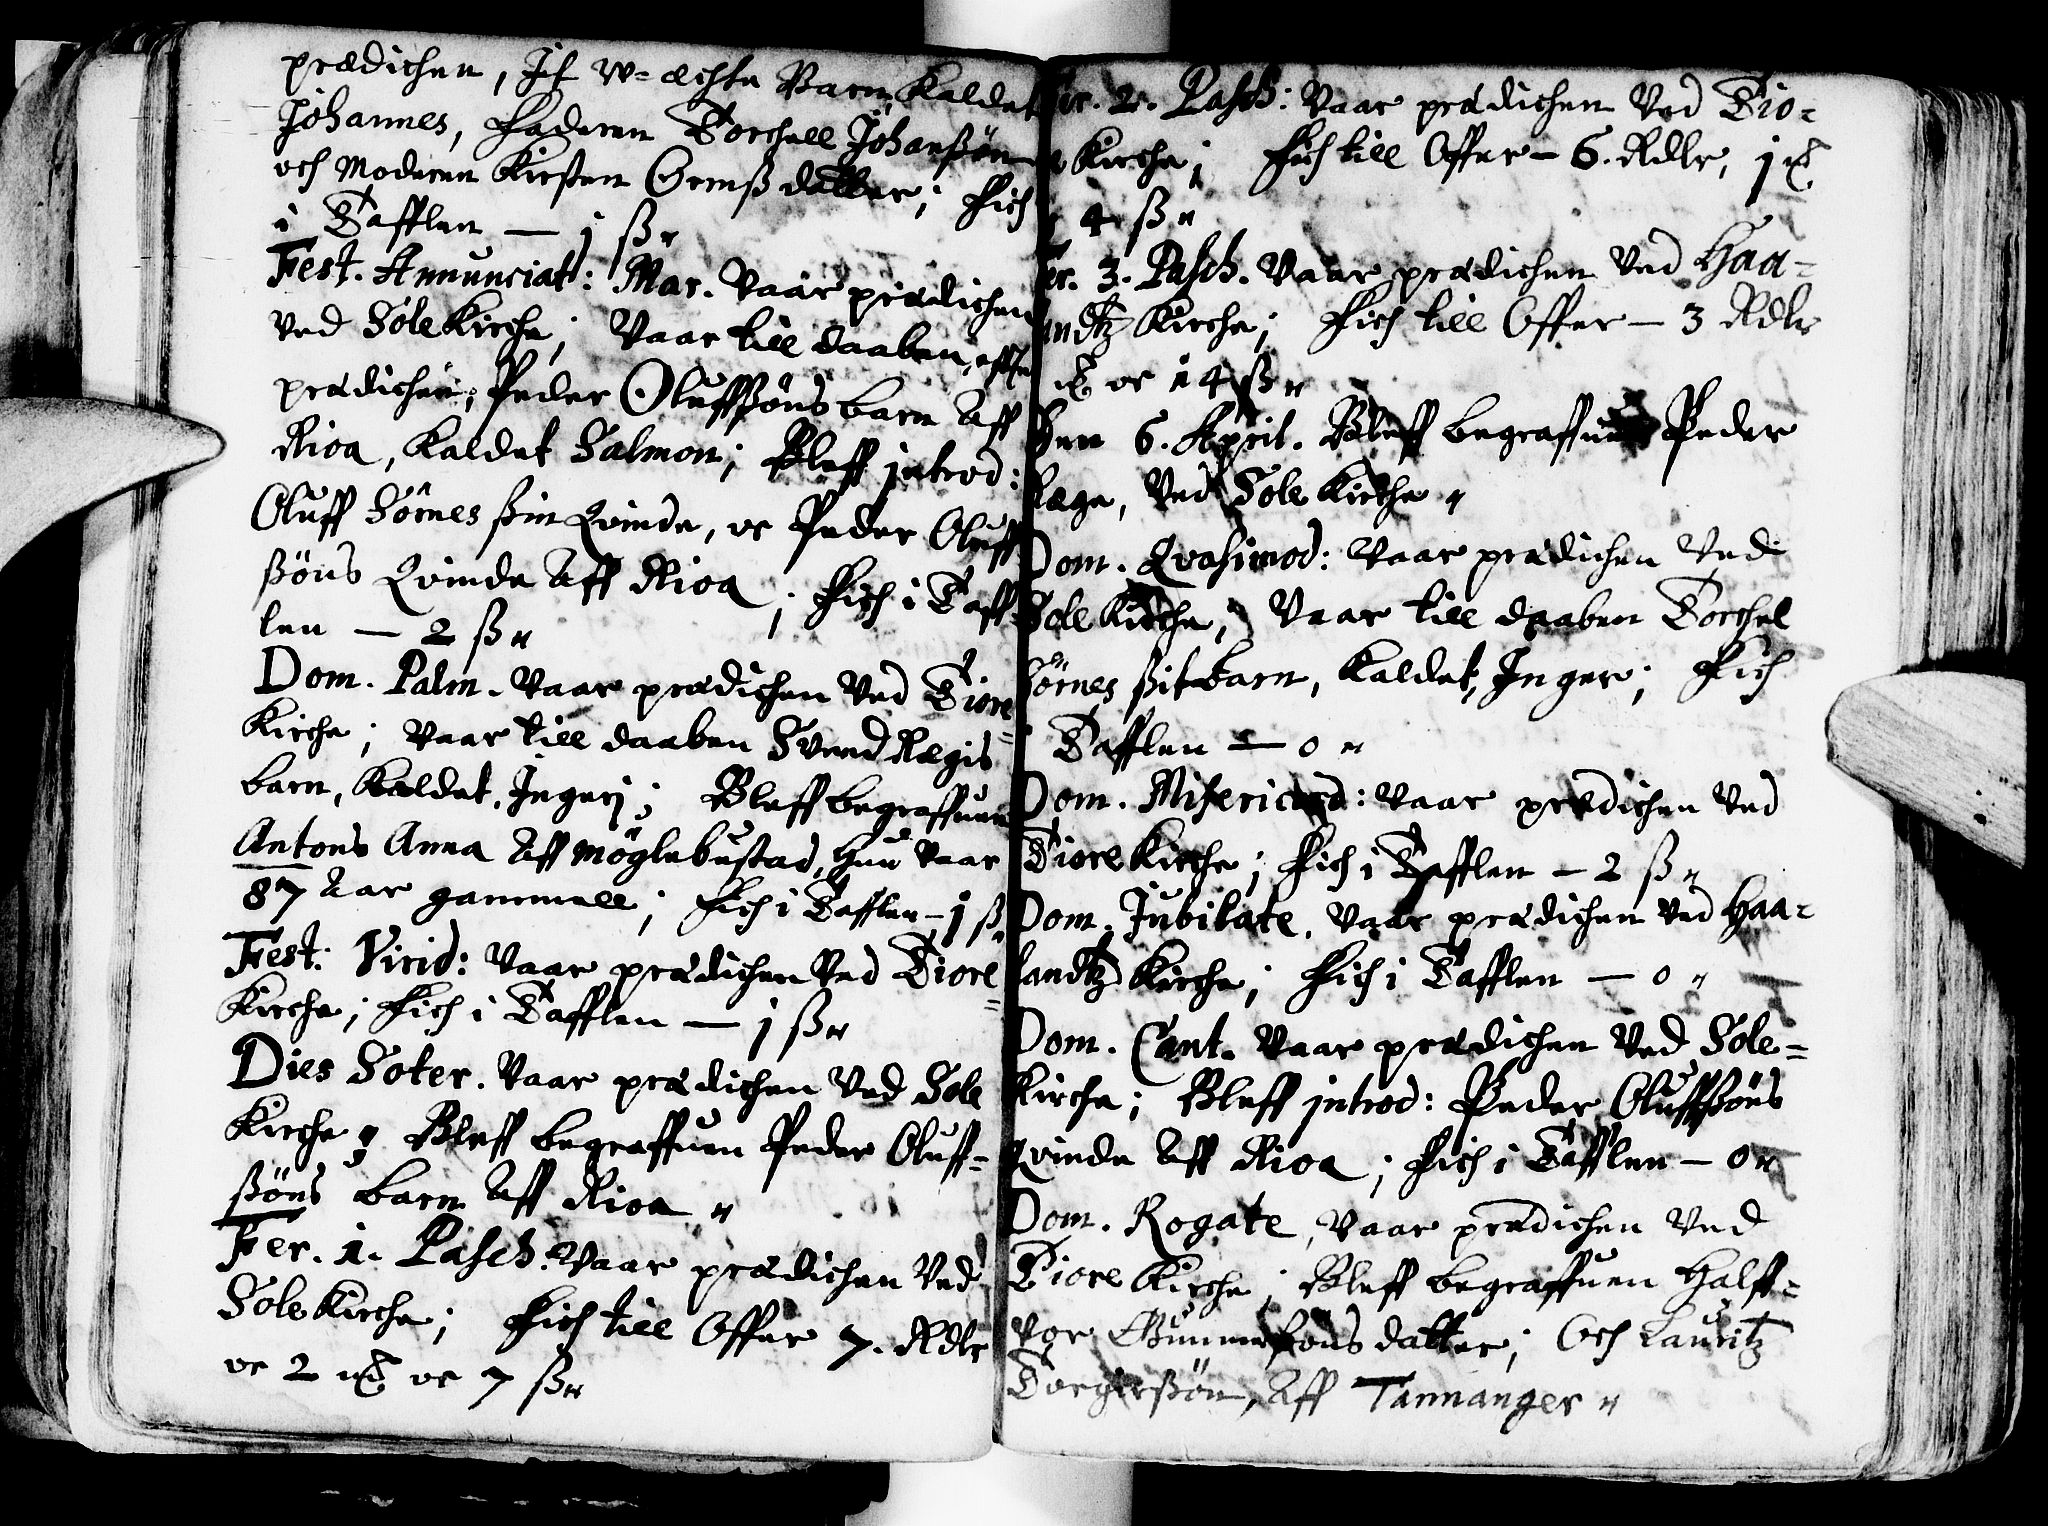 prædichen, Jt w=ächte Barn, Kaldet
Johannes, Faderen Torchell Johanßön
och Moderen Kirsten Ormßdatter; Fich
i Tafflen — j ß"
Fest. Annunciat: Mar. Vaar prædichen
Ved SoleKirche; Vaar till daaben, efter
prædichen, Peder Oluffßöns barn Aff
Rioa, Kaldet Salmon; Bleff introd:
Oluff Sörnes ßin Qvinde, oc Peder Oluff
ßöns Qvinde Aff Rioa; Fich i Taff-
len — 2 ß"
Dom. Palm. Vaar prædichen Ved Tiore
Kirche; Vaar till daaben Svend Rægis
barn, Kaldet, Ingerj; Bleff begraffuen
Antons Anna Aff Möglebustad, hun Vaar
87 Aar gammell; Fich i Tafflen — j ß"
Fest: Virid: Vaar prædichen Ved Tiore
Kirche; Fich i Tafflen — j ß"
Dies Soter. Vaar prædichen Ved Sole
Kirche; Bleff begraffuen Peder Oluff=
ßöns barn Aff Rioa "
Fer. 1. Pasch. Vaar prædichen Ved
SoleKirche; Fich till Offer 7. Rdlr
oc 2 oc 7 ß"
Fer. 2. Pasch: Vaar prædichen Ved Tio=
Kirche; Fich till Offer — 6. Rdlr, 1
4 ß"
Fer. 3. Pasch. Vaar prædichen Ved Haa=
landtz Kirche; Fich till Offer — 3 Rdlr
oc 14 ß"
Den 6. April. Bleff begraffuen Peder
Ræge, Ved SoleKirche "
Dom. Qvasimod: Vaar prædichen Ved
SoleKirche; Vaar till daaben Torchel
Sörnes ßit barn, Kaldet, Inger; Fich
i Tafflen — 0 "
Dom. Misericord: Vaar prædichen Ved
TioreKirche; Fich i Tafflen — 2 ß"
Dom. Jubilate. Vaar prædichen Ved Haa=
landtz Kirche; Fich i Tafflen — 0 "
Dom. Cant. Vaar prædichen Ved Sole=
Kirche; Bleff introd: Peder Oluffßöns
Qvinde Aff Rioa; Fich i Tafflen — 0 "
Dom. Rogate, Vaar prædichen Ved
TioreKirche; Bleff begraffuen Halff=
vor Gunnerßöns datter; Och Lauritz
Torgerßön, Aff Tannanger "